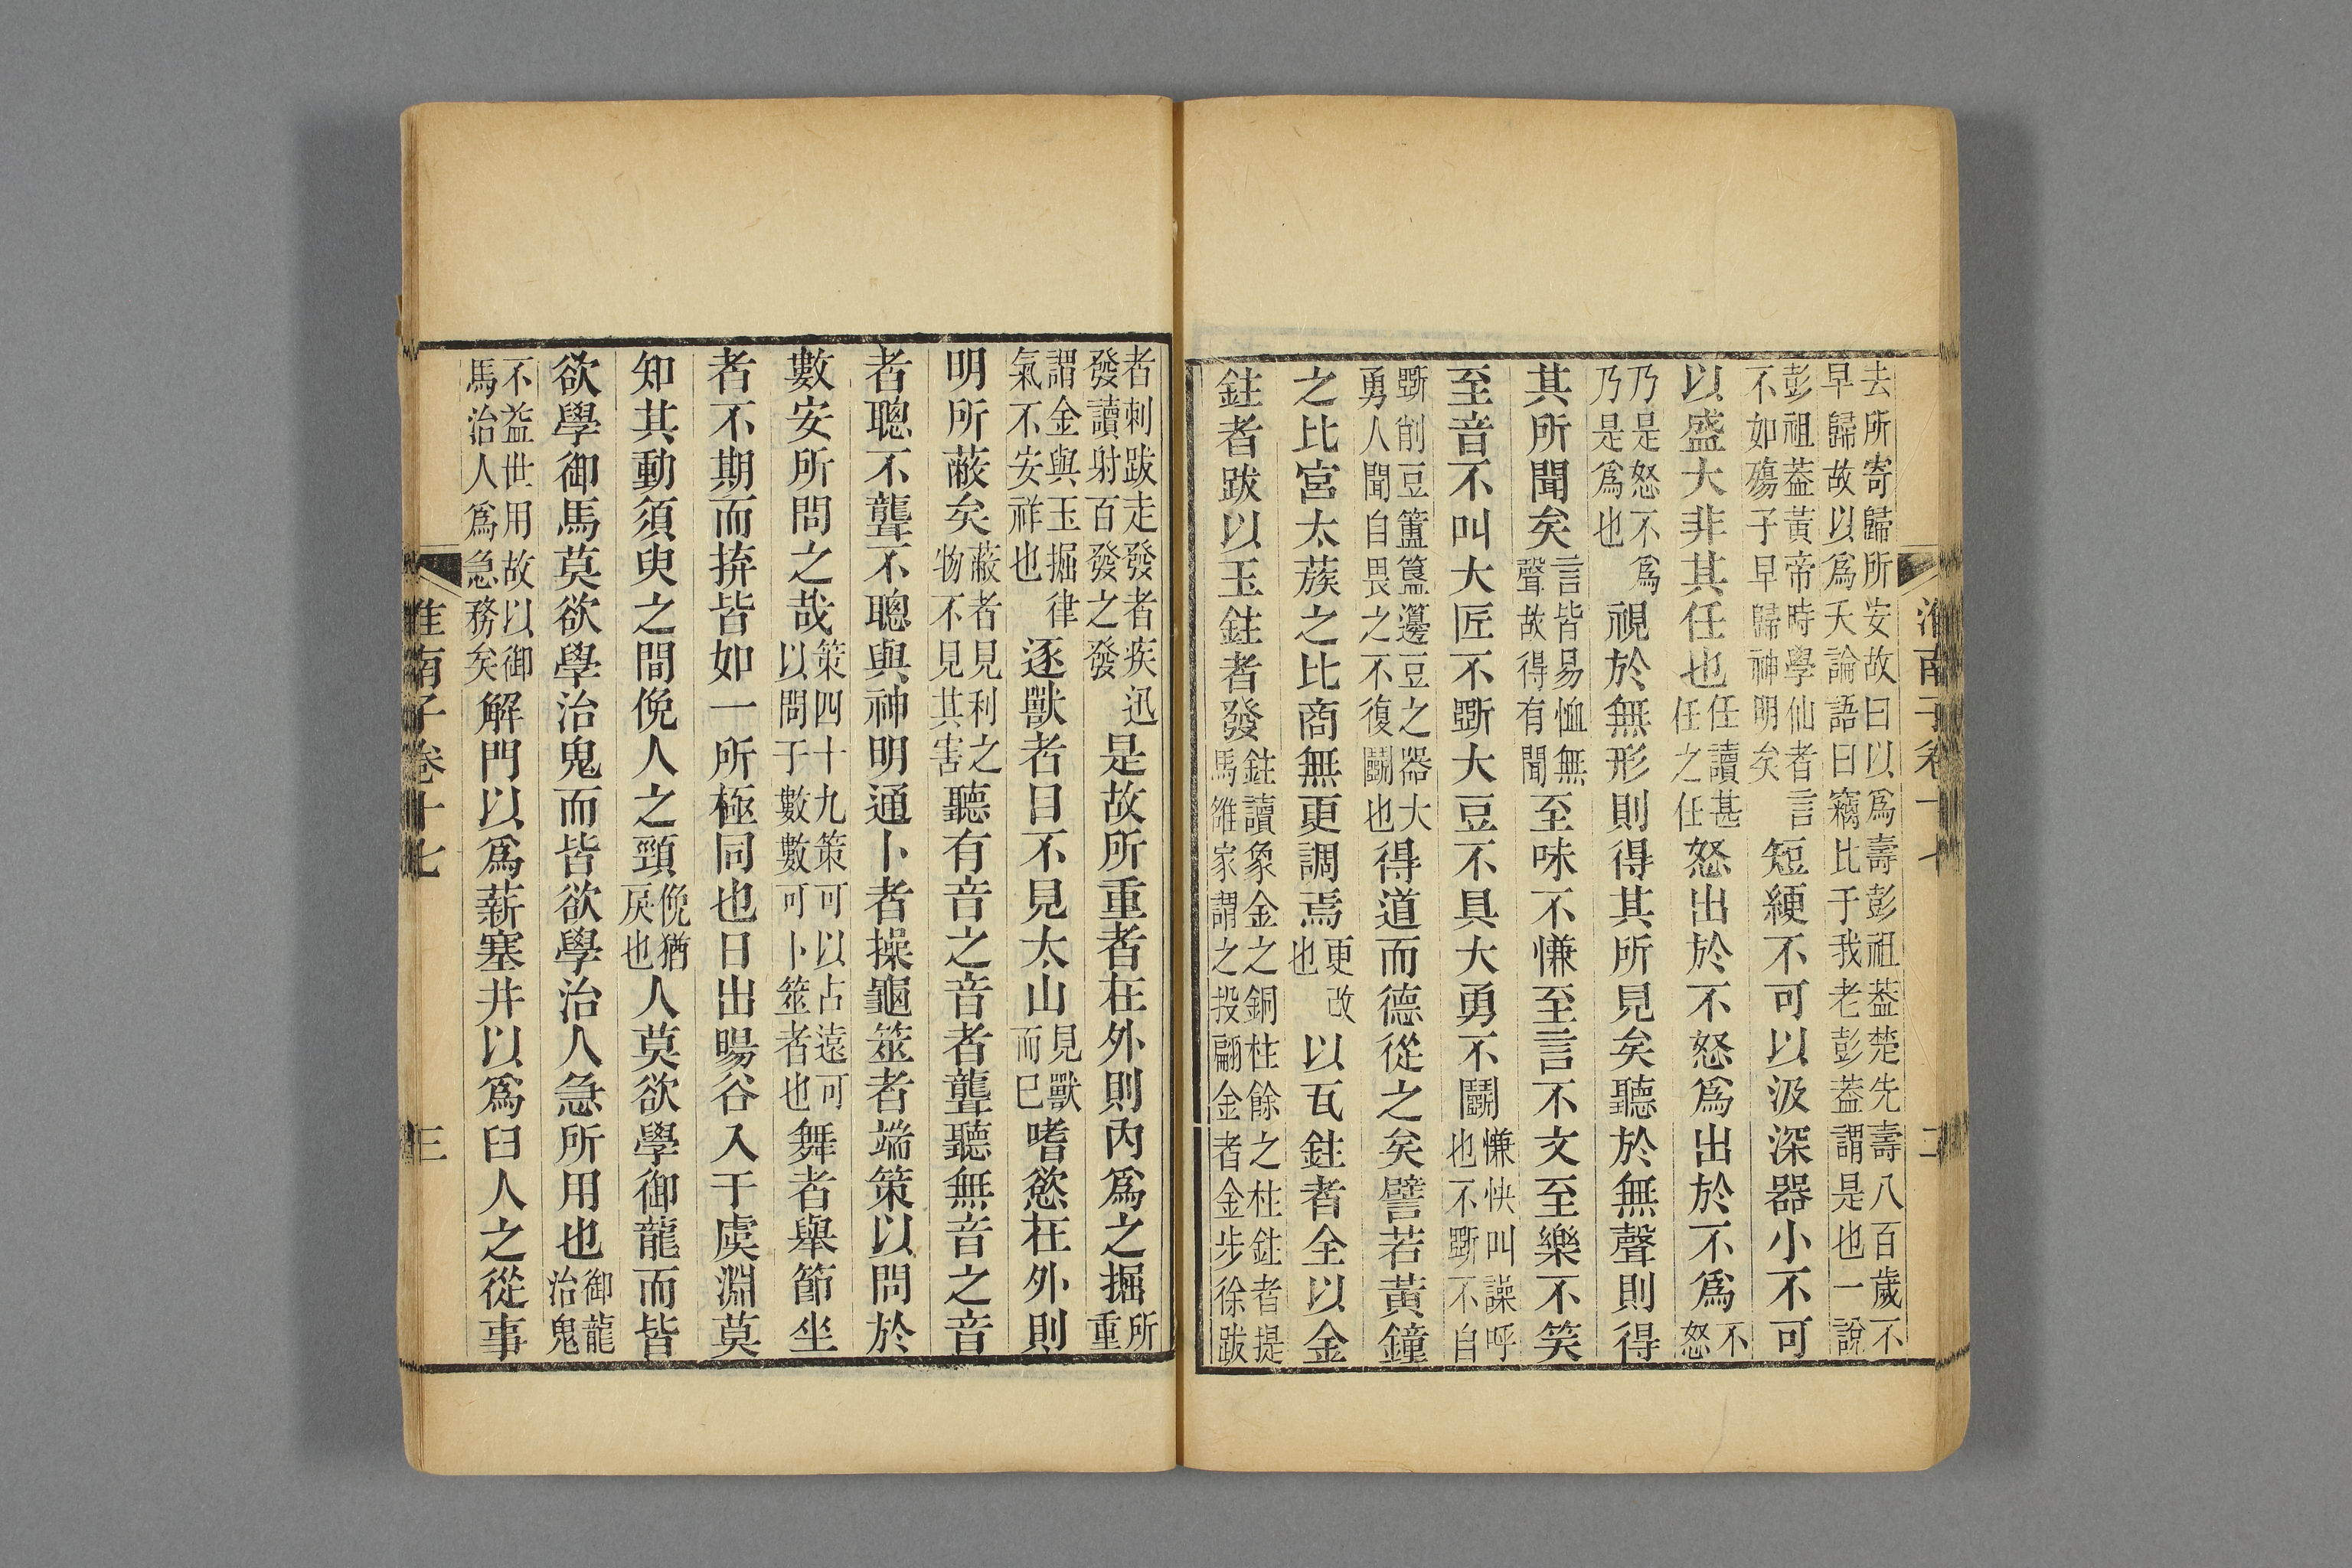 淮南子卷十七 二
去所寄歸所安故曰以為壽彭祖葢楚先壽八百歲不
早歸故以為夭論語曰竊比于我老彭葢謂是也一說
彭祖葢黃帝時學仙者言
不如殤子早歸神明矣
短綆不可以汲深器小不可
以盛大非其任也
任讀甚
任之任
怒出於不怒為出於不為
不
怒
乃是怒不為
乃是為也
視於無形則得其所見矣聽於無聲則得
其所聞矣
言皆易恤無
聲故得有聞
至味不慊至言不文至樂不笑
至音不叫大匠不斲大豆不具大勇不鬬
慊怏叫譟呼
也不斲不自
斲削豆簠簋籩豆之器大
勇人聞自畏之不復鬬也
得道而德從之矣譬若黃鐘
之比宮太蔟之比商無更調焉
更改
也
以瓦鉒者全以金
鉒者跋以玉鉒者發
鉒讀象金之銅柱餘之柱鉒者提
馬雒家謂之投翩金者金步徐跋
者刺跋走發者疾迅
發讀射百發之發
是故所重者在外則內為之掘
所
重
謂金與玉掘律
氣不安祥也
逐獸者目不見太山
見獸
而已
嗜慾在外則
明所蔽矣
蔽者見利之
物不見其害
聽有音之音者聾聽無音之音
者聰不聾不聰與神明通卜者操龜筮者端策以問於
數安所問之哉
策四十九策可以占遠可
以問于數數可卜筮者也
舞者舉節坐
者不期而拚皆如一所極同也日出暘谷入于虞淵莫
知其動須臾之間俛人之頸
俛猶
戾也
人莫欲學御龍而皆
欲學御馬莫欲學治鬼而皆欲學治人急所用也
御龍
治鬼
不益世用故以御
馬治人為急務矣
解門以為薪塞井以為臼人之從事
淮南子卷十七 三